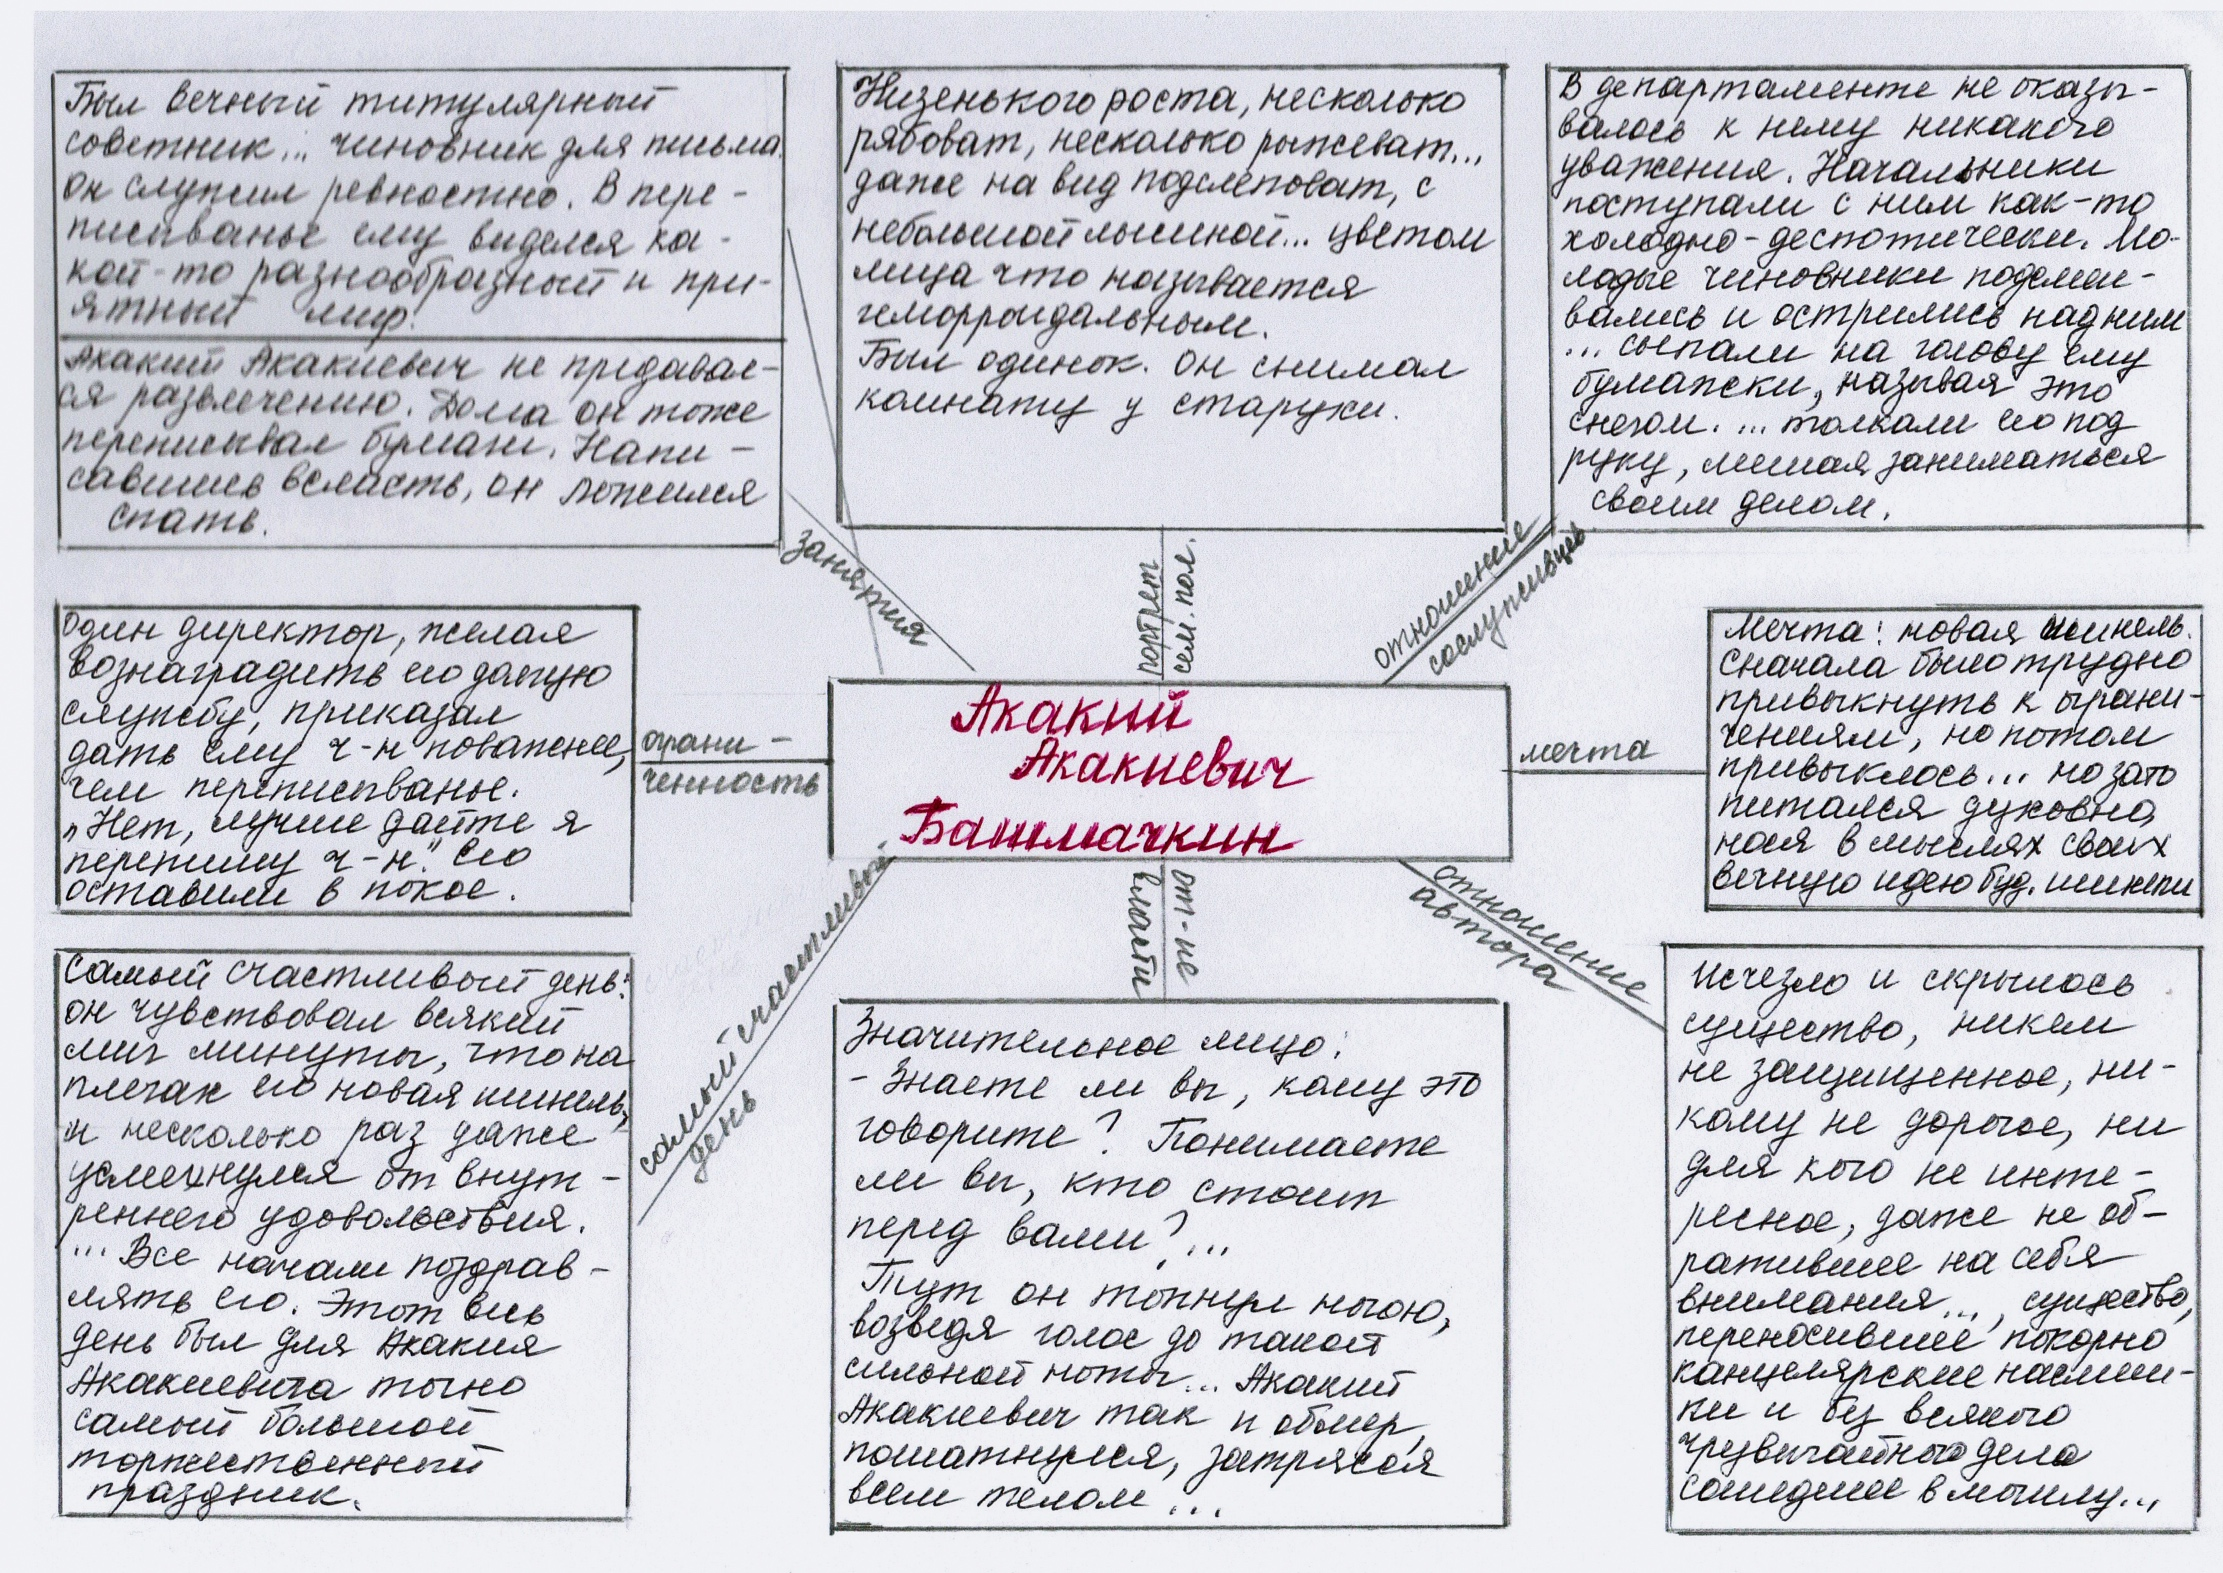 Был вечный титулярный
советник... чиновник для письма.
Он служил ревностно. В пере-
писыванье ему виделся ка-
кой-то разнообразный и при-
ятный мир.
Акакий Акакиевич не предавал-
ся развлечению. Дома он тоже
переписывал бумаги. Напи-
савшись всласть, он ложился
спать.
занятия
Низенького роста, несколько
рябоват, несколько рыжеват...
даже на вид подслеповат, с
небольшой лысиной... цветом
лица что называется
геморроидальным.
Был одинок. Он снимал
комнату у старухи.
портрет
сем. пол.
В департаменте не оказы-
валось к нему никакого
уважения. Начальники
поступали с ним как-то
холодно-деспотически. Мо-
лодые чиновники подсмеи-
вались и острились над ним
... сыпали на голову ему
бумажки, называя это
снегом. ... толкали его под
руку, мешая заниматься
своим делом.
отношение
сослуживцев
Один директор, желая
вознаградить его долгую
службу, приказал
дать ему ч-н поважнее,
чем переписыванье.
"Нет, лучше дайте я
перепишу ч-н." Его
оставили в покое.
ограни-
ченность
Акакий
Акакиевич
Башмачкин
мечта
Мечта: новая шинель.
Сначала было трудно
привыкнуть к ограни-
чениям, но потом
привыклось... но зато
питался духовно,
нося в мыслях своих
вечную идею буд. шинели
Самый счастливый день:
он чувствовал всякий
миг минуты, что на
плечах его новая шинель,
и несколько раз даже
усмехнулся от внут-
реннего удовольствия.
... Все начали поздрав-
лять его. Этот весь
день был для Акакия
Акакиевича точно
самый большой
торжественный
праздник.
самый счастливый
день
от-ие
власти
Значительное лицо:
- Знаете ли вы, кому это
говорите? Понимаете
ли вы, кто стоит
перед вами?...
Тут он топнул ногою,
возведя голос до такой
сильной ноты... Акакий
Акакиевич так и обмер,
пошатнулся, затрясся
всем телом...
отношение
автора
Исчезло и скрылось
существо, никем
не защищенное, ни-
кому не дорогое, ни
для кого не инте-
ресное, даже не об-
ратившее на себя
внимания..., существо,
переносившее покорно
канцелярские насмеш-
ки и без всякого
чрезвычайного дела
сошедшее в могилу...